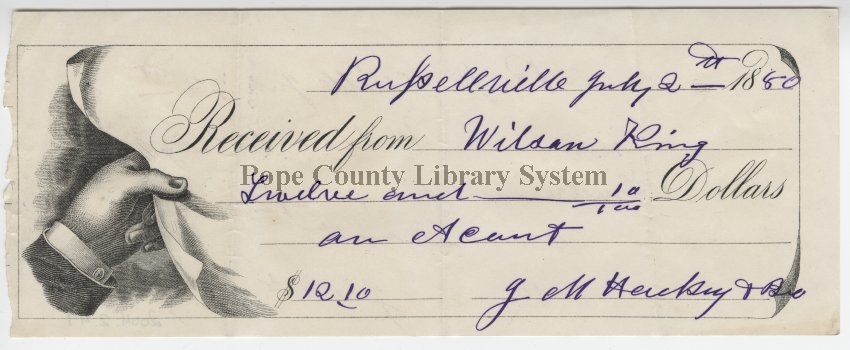 Russellville July 2nd 1880
Received from Wilson King
Pope County Library System
Twelve and 10/100 Dollars
on Acount
$12.10 J M Harkey & Bro